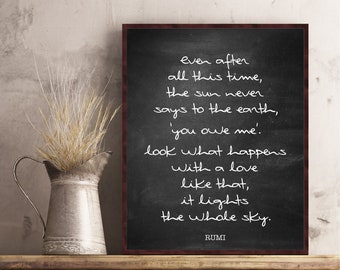 even after
all this time,
the sun never
says to the earth,
'you owe me'.
look what happens
with a love
like that,
it lights
the whole sky.
RUMI